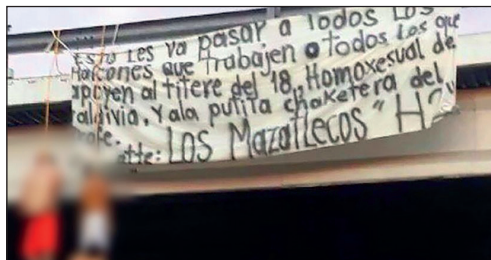 Esto les va pasar a Todos Los
Halcones que Trabajen o todos los que
apoyen al titere del 18, Homoxesual de
aldivia, Y ala putita chaketera del
Atte: LOS MazatLecos "H2"